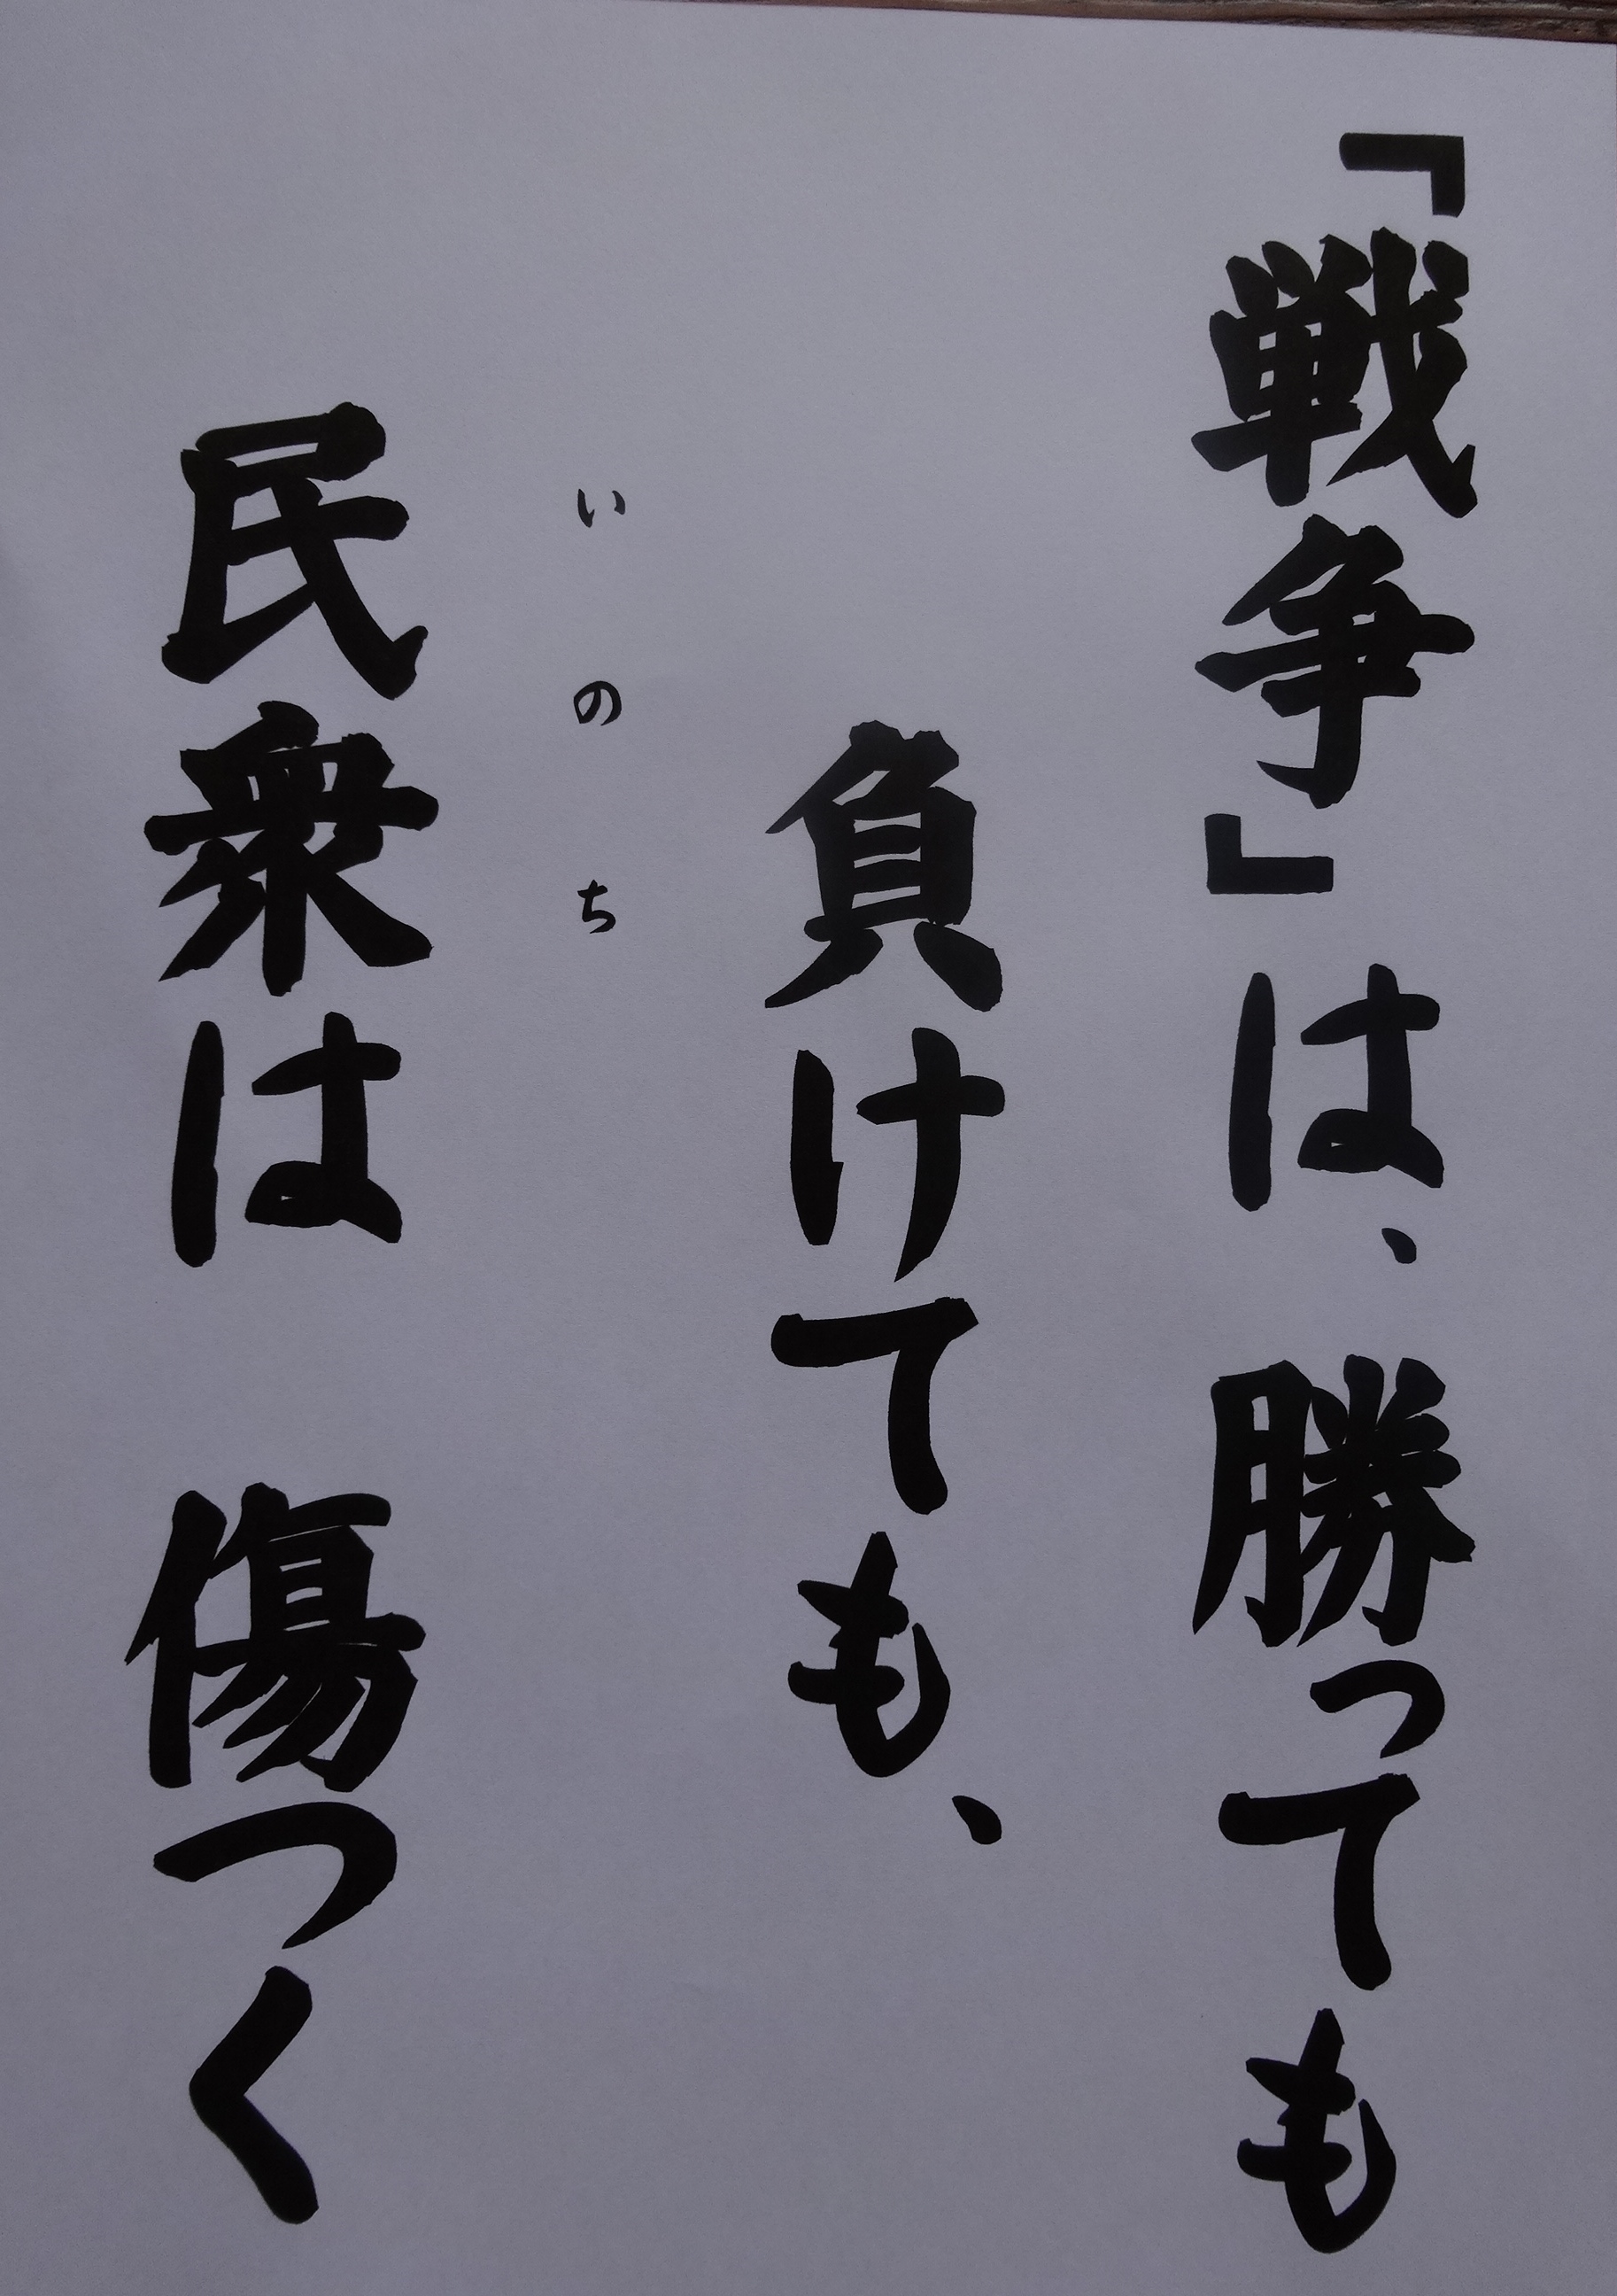 「戦争」は、勝っても
負けても、
いのち
民衆は 傷つく